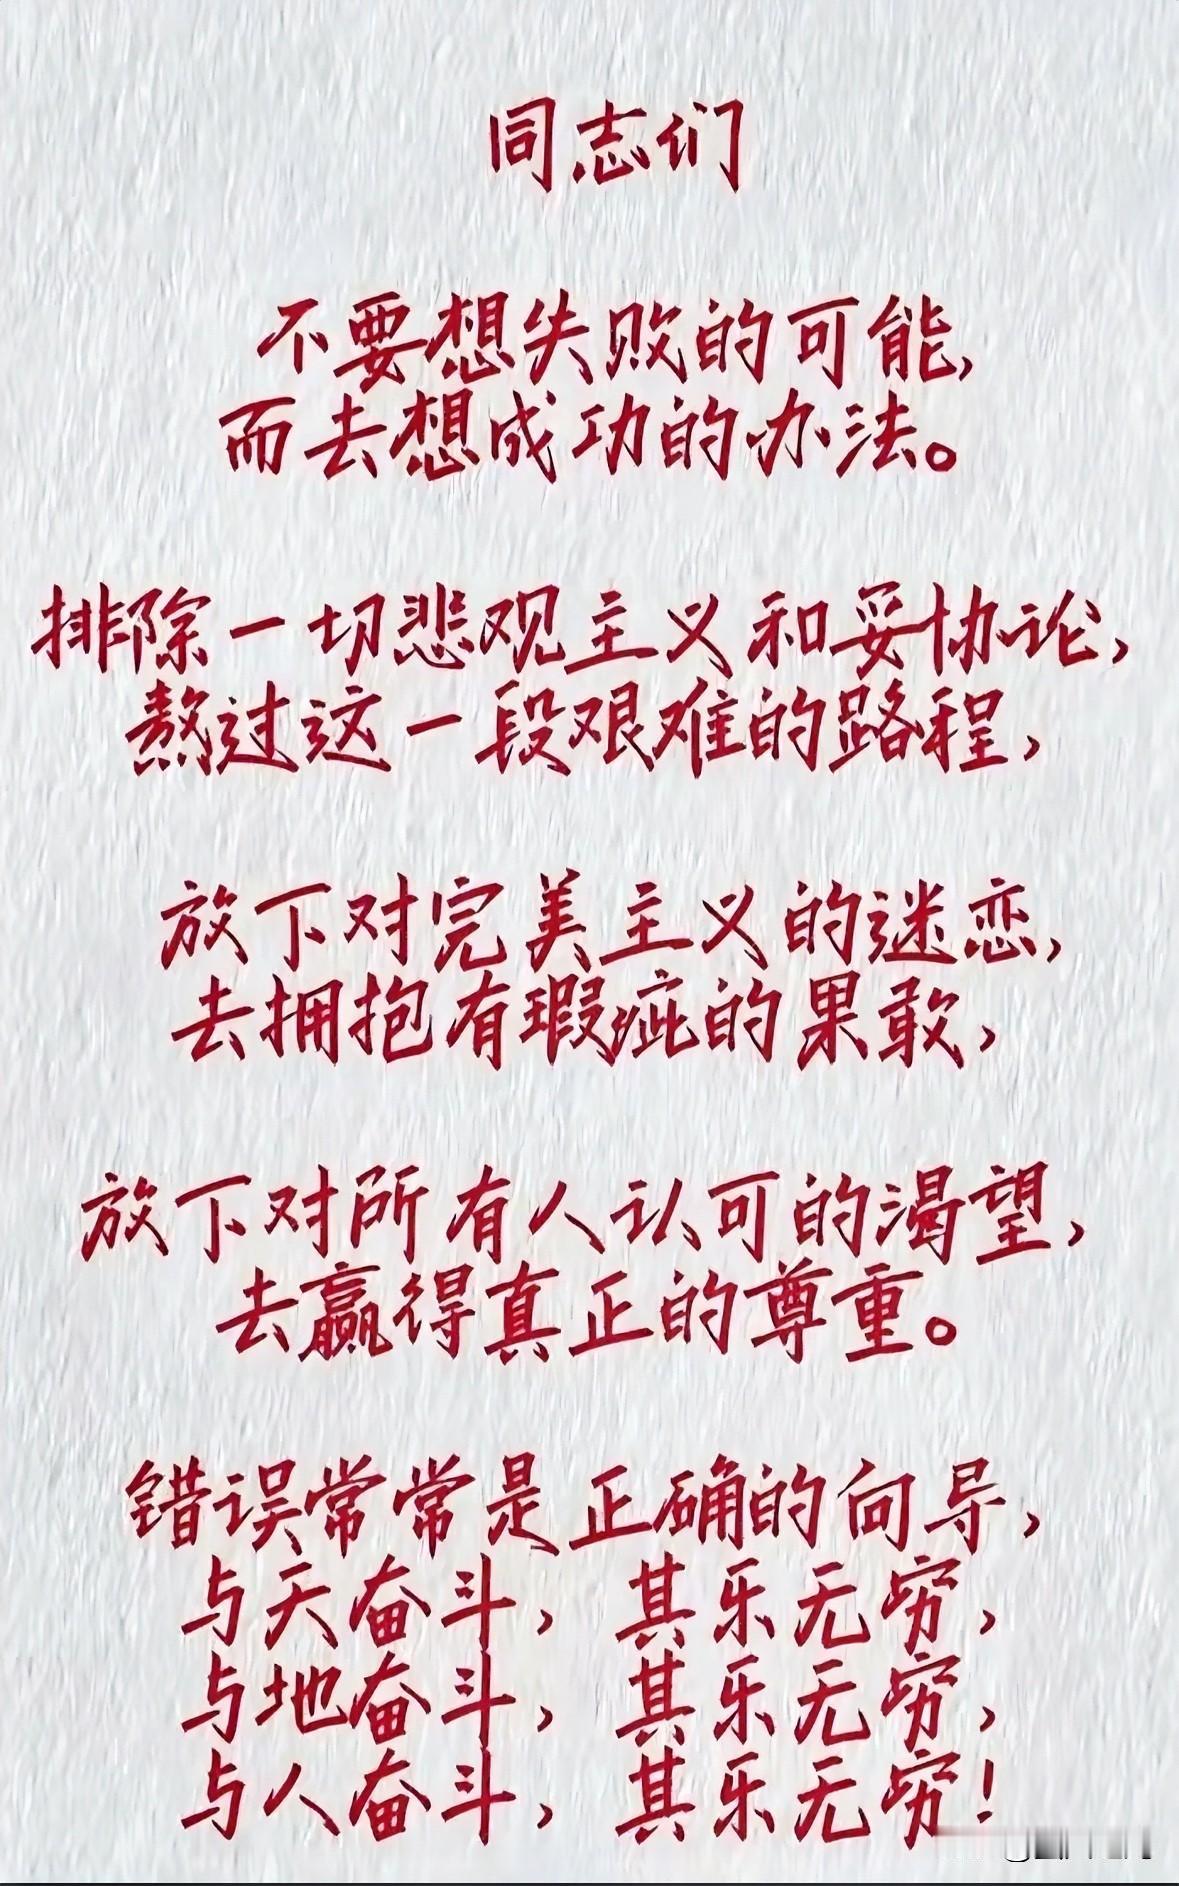 同志们
不要想失败的可能,
而去想成功的办法。
排除一切悲观主义和妥协论,
熬过这一段艰难的路程,
放下对完美主义的迷恋,
去拥抱有瑕疵的果敢,
放下对所有人认可的渴望,
去赢得真正的尊重。
错误常常是正确的向导,
与天奋斗, 其乐无穷,
与地奋斗, 其乐无穷,
与人奋斗, 其乐无穷!